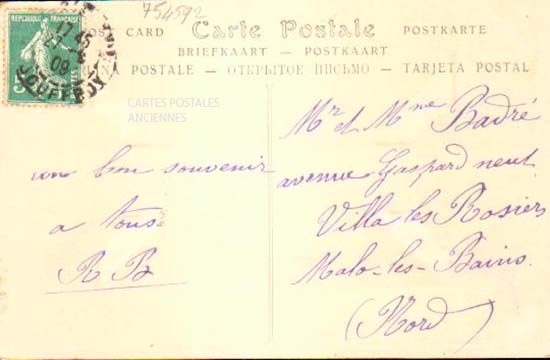 754592
POST CARD Carte Postale POSTKARTE
BRIEFKAART — POSTKAART
NA POSTALE — ОТКРЫТОЕ ПИСЬМО — TARJETA POSTAL
REPUBLIQUE FRANÇAISE
17 45
09
CARTES POSTALES
ANCIENNES
un bon souvenir
a tous
R B
Mr et Mme Badré
avenue Gaspard neut
Villa les Rosiers
Malo-les-Bains
(Nord)